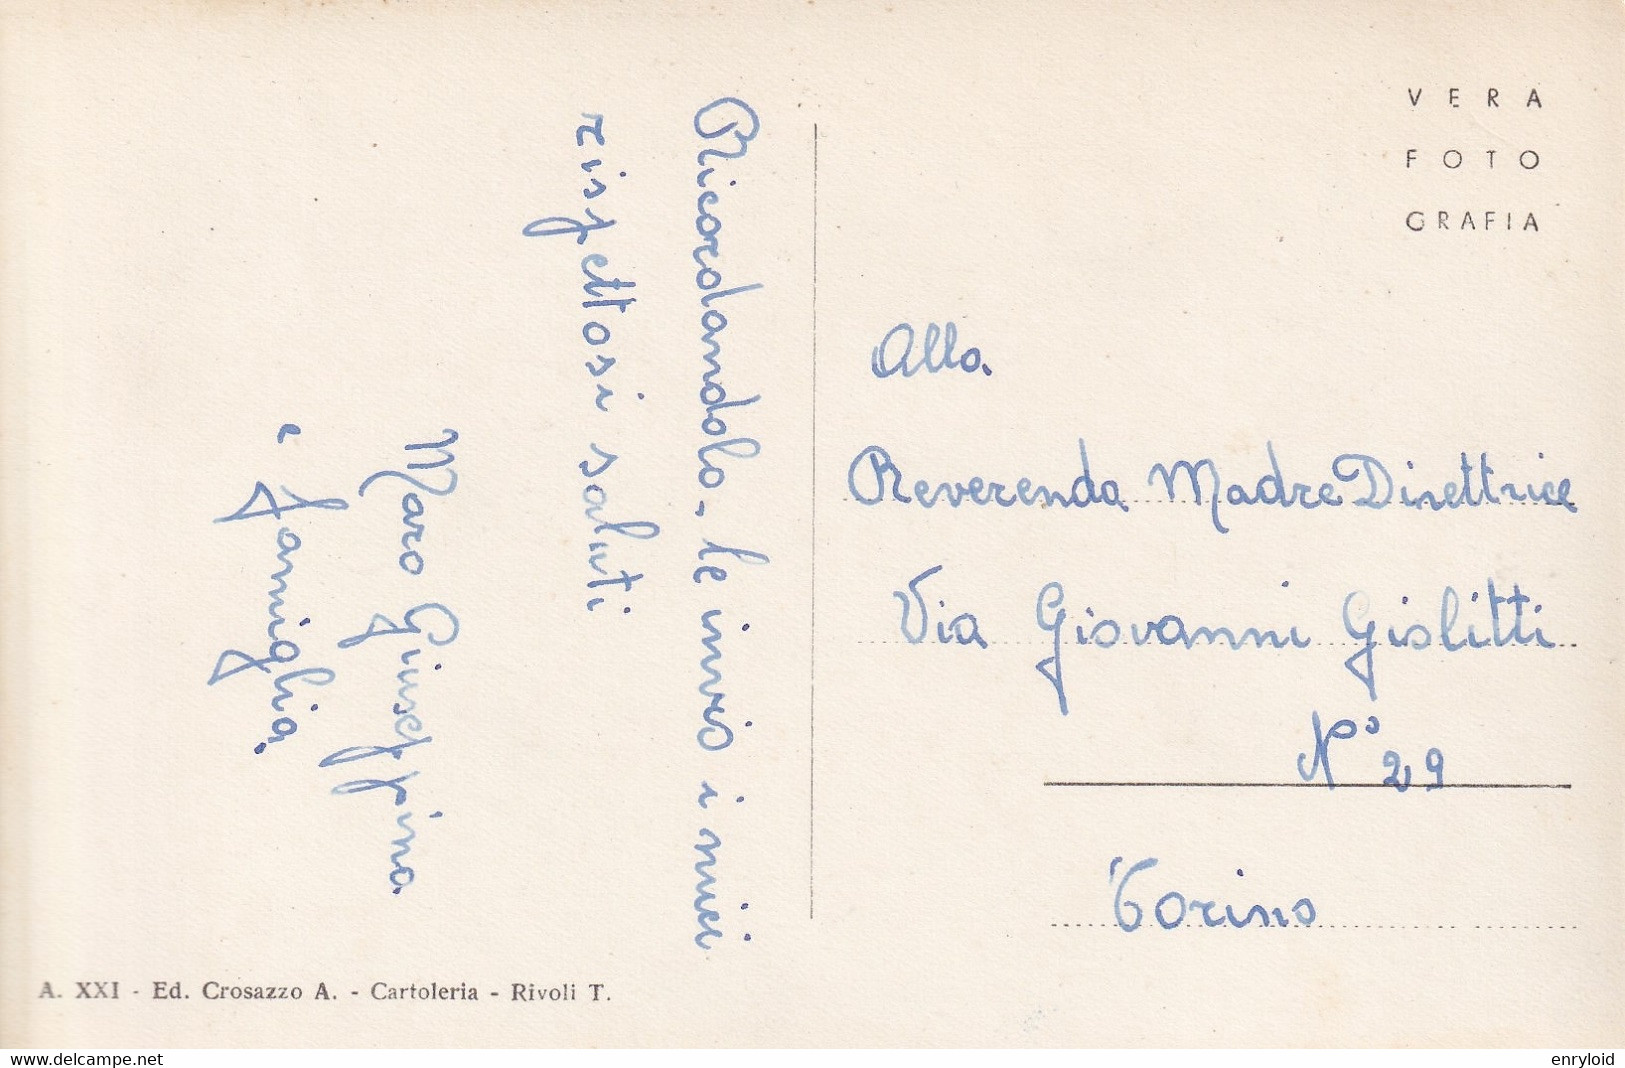 Ricordandola, le invio i miei
rispettosi saluti
Naro Giuseppina
e famiglia.
VERA
FOTO
GRAFIA
Alla
Reverenda Madre Direttrice
Via Giovanni Gislitti
N° 29
Torino
A. XXI - Ed. Crosazzo A. - Cartoleria - Rivoli T.
www.delcampe.net
enryloid